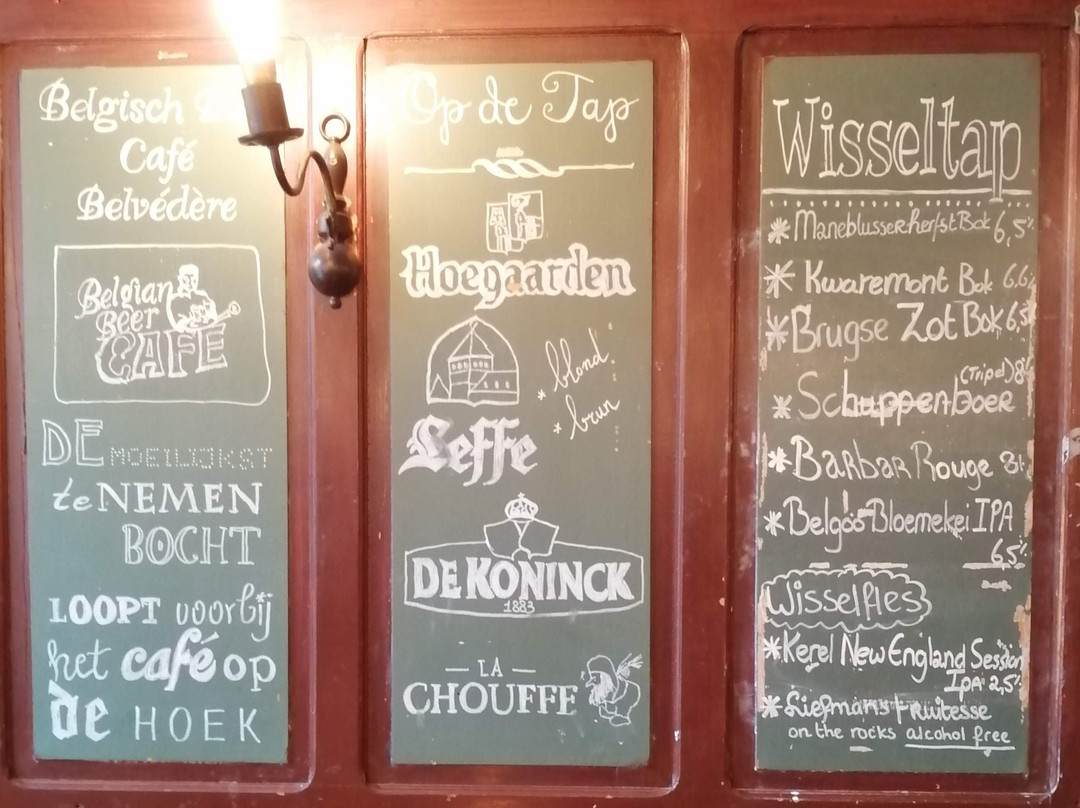 Belgisch
Café
Belvédère
Belgian
Beer
CAFÉ
DE MOEILIJKST
te NEMEN
BOCHT
LOOPT voorbij
het café op
de HOEK
Op de Tap
Hoegaarden
* blond
* brun
Leffe
DE KONINCK
1883
LA
CHOUFFE
Wisseltap
* Maneblusser herfst Bok 6,5%
* Kwaremont Bok 6,6%
* Brugse Zot Bok 6,5%
(Tripel) 8%
* Schuppenboer
* BarBar Rouge 8%
* Belgoo Bloemekei IPA
6,5%
Wisselfles
* Kerel New England Session
IPA 2,5%
* Liefmans Fruitesse
on the rocks alcohol free